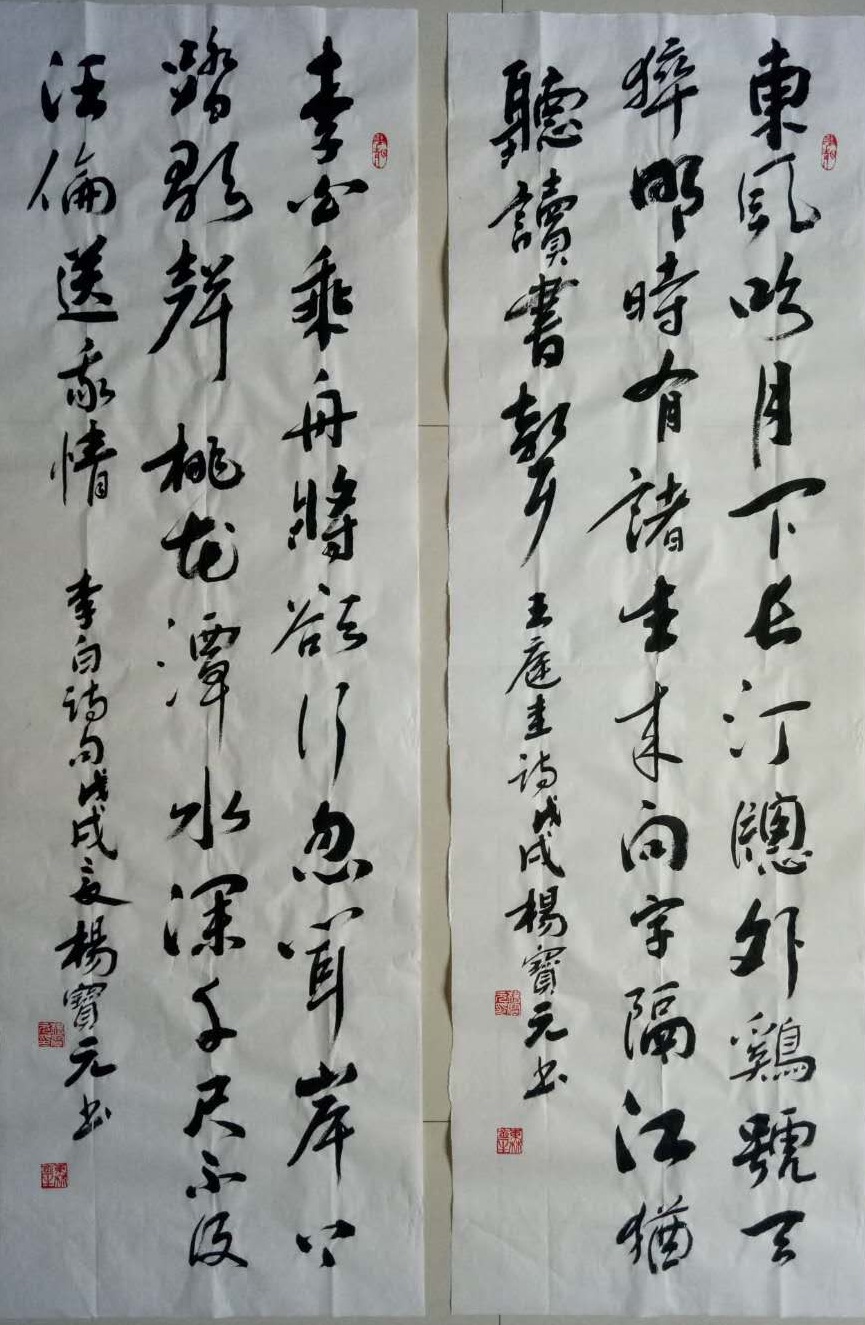 東風吹月下長汀牕外鷄號天
猝明時有諸生来问字隔江猶
聽讀書聲
王庭圭诗戊戌楊寶元书
李白乘舟將欲行忽闻岸上
踏歌聲桃花潭水深千尺不及
汪倫送我情
李白诗句戊戌夏楊寶元书